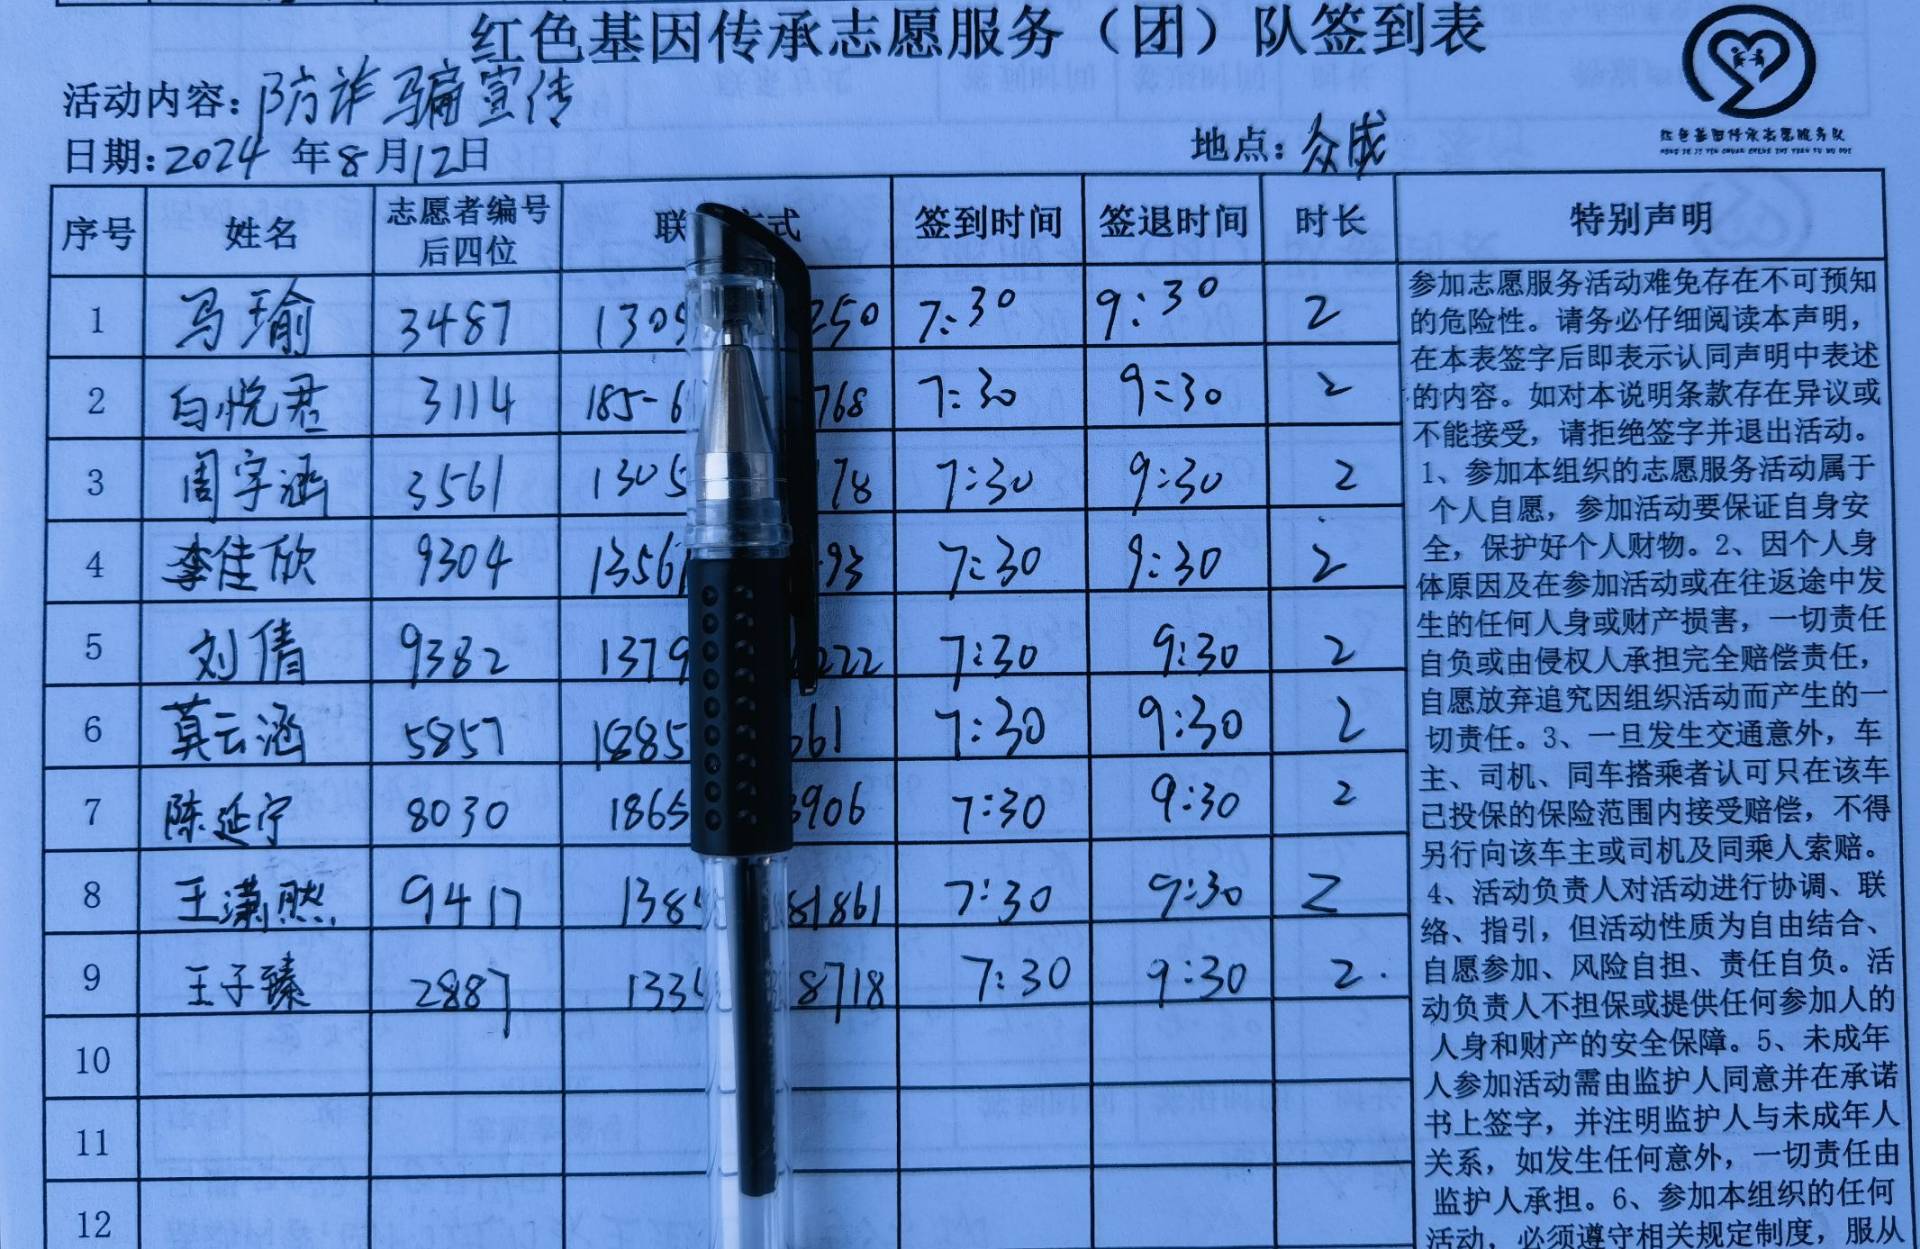 红色基因传承志愿服务（团）队签到表
活动内容：防诈骗宣传
日期：2024年8月12日 地点：众成
红色基因传承志愿服务队
序号 姓名 志愿者编号后四位 联 式 签到时间 签退时间 时长 特别声明
1 马瑜 3487 1305 250 7:30 9:30 2
2 白悦君 3114 185-6 768 7:30 9:30 2
3 周宇涵 3561 1305 178 7:30 9:30 2
4 李佳欣 9304 1356 93 7:30 9:30 2
5 刘倩 9382 1379 222 7:30 9:30 2
6 莫云涵 5857 1885 661 7:30 9:30 2
7 陈延宁 8030 1865 3906 7:30 9:30 2
8 王潇然 9417 138 81861 7:30 9:30 2
9 王子臻 2887 133 8718 7:30 9:30 2
10
11
12
参加志愿服务活动难免存在不可预知
的危险性。请务必仔细阅读本声明，
在本表签字后即表示认同声明中表述
的内容。如对本说明条款存在异议或
不能接受，请拒绝签字并退出活动。
1、参加本组织的志愿服务活动属于
个人自愿，参加活动要保证自身安
全，保护好个人财物。2、因个人身
体原因及在参加活动或在往返途中发
生的任何人身或财产损害，一切责任
自负或由侵权人承担完全赔偿责任，
自愿放弃追究因组织活动而产生的一
切责任。3、一旦发生交通意外，车
主、司机、同车搭乘者认可只在该车
已投保的保险范围内接受赔偿，不得
另行向该车主或司机及同乘人索赔。
4、活动负责人对活动进行协调、联
络、指引，但活动性质为自由结合、
自愿参加、风险自担、责任自负。活
动负责人不担保或提供任何参加人的
人身和财产的安全保障。5、未成年
人参加活动需由监护人同意并在承诺
书上签字，并注明监护人与未成年人
关系，如发生任何意外，一切责任由
监护人承担。6、参加本组织的任何
活动，必须遵守相关规定制度，服从